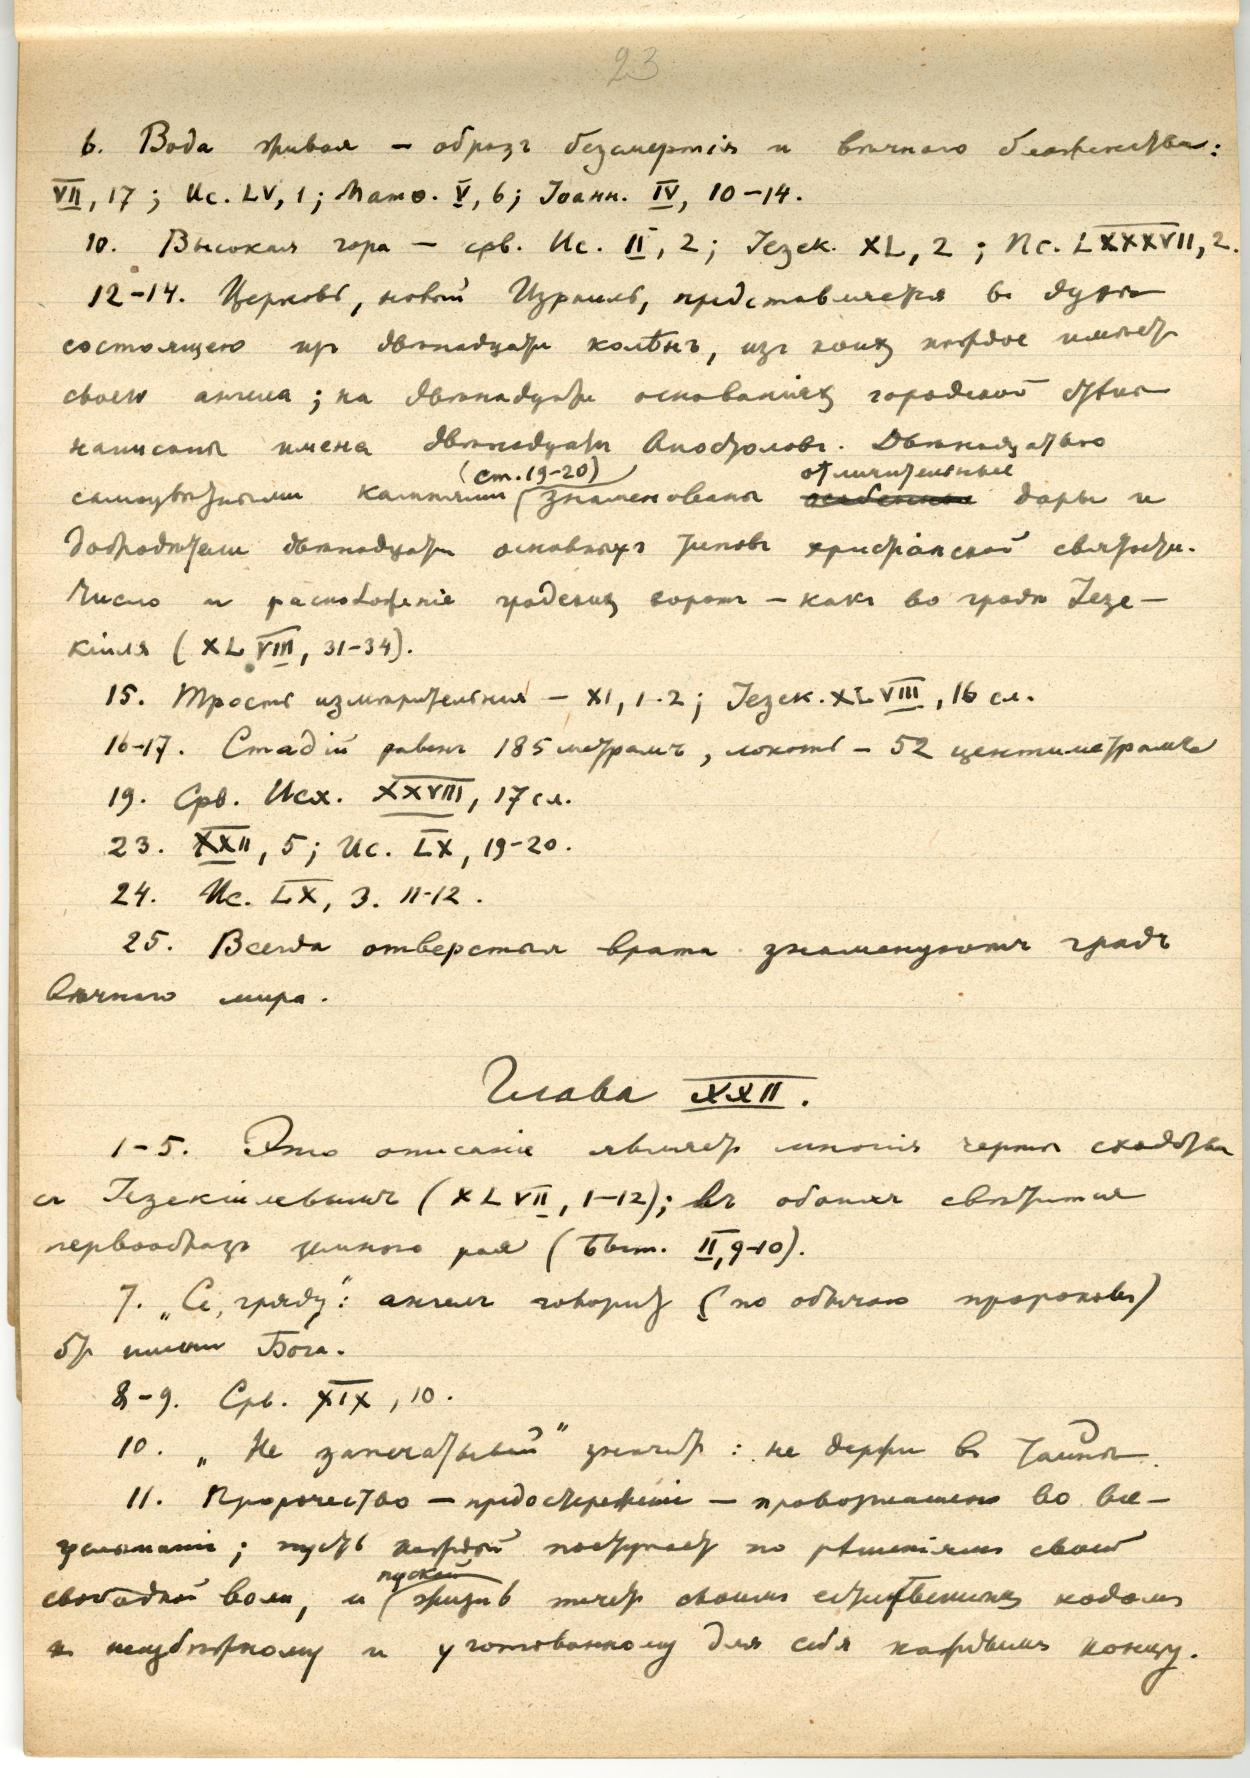 23
6. Вода живая – образъ безсмертія и вѣчнаго блаженства:
VII, 17; Ис. LV, 1; Матѳ. V, 6; Іоанн. IV, 10-14.
10. Высокая гора – срв. Ис. II, 2; Іезек. XL, 2; Пс. LXXXVII, 2.
12-14. Церковь, новый Израиль, представляется въ духѣ
состоящею изъ двѣнадцати колѣнъ, изъ коихъ каждое имѣетъ
своего ангела; на двѣнадцати основаніяхъ городской стѣны
написаны имена двѣнадцати Апостоловъ. Двѣнадцатью
самоцвѣтными каменьями (ст. 19-20) знаменованы отличительные дары и
добродѣтели двѣнадцати основныхъ типовъ христіанской святости.
Число и расположеніе градскихъ воротъ – какъ во градѣ Іезе-
кіиля (XLVIII, 31-34).
15. Трость измѣрительная – XI, 1-2; Іезек. XLVIII, 16 сл.
16-17. Стадій равенъ 185 метрамъ, локоть – 52 центиметрамъ
19. Срв. Исх. XXVIII, 17 сл.
23. XXII, 5; Ис. LX, 19-20.
24. Ис. LX, 3. 11-12.
25. Всегда отверстыя врата знаменуютъ градъ
вѣчнаго мира.
Глава XXII.
1-5. Это описаніе являетъ многія черты сходства
съ Іезекіилевымъ (XLVII, 1-12); въ обоихъ свѣтится
первообразъ земного рая (Быт. II, 9-10).
7. „Се, гряду“: ангелъ говоритъ (по обычаю пророковъ)
отъ имени Бога.
8-9. Срв. XIX, 10.
10. „Не запечатывай“ значитъ: не держи въ тайнѣ.
11. Пророчество – предостереженіе – провозглашено во все-
услышаніе; пусть каждый поступаетъ по рѣшеніямъ своей
свободной воли, и пускай жизнь течетъ своимъ естественнымъ ходомъ
къ неизбѣжному и уготованному для себя каждымъ концу.